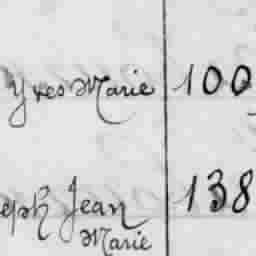 Yves Marie 100
eph Jean 138
Marie